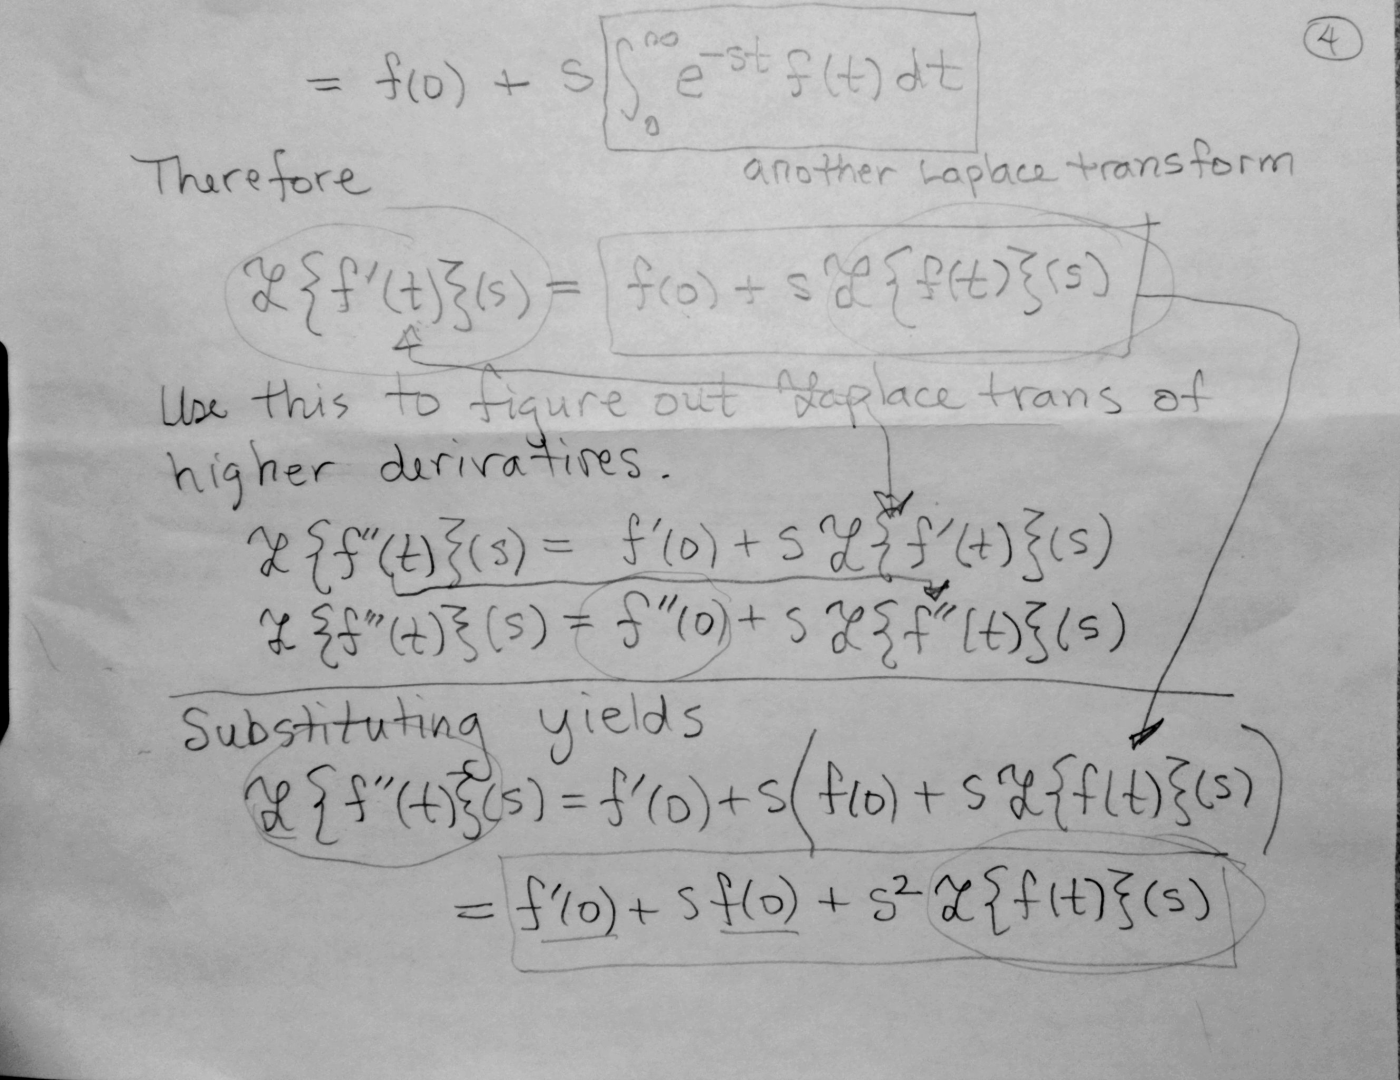 ④
= f(0) + s ∫₀^∞ e^{-st} f(t) dt
Therefore another Laplace transform
ℒ{f'(t)}(s) = f(0) + s ℒ{f(t)}(s)
Use this to figure out ℒaplace trans of
higher derivatives.
ℒ{f''(t)}(s) = f'(0) + s ℒ{f'(t)}(s)
ℒ{f'''(t)}(s) = f''(0) + s ℒ{f''(t)}(s)
Substituting yields
ℒ{f''(t)}(s) = f'(0) + s(f(0) + s ℒ{f(t)}(s))
= f'(0) + s f(0) + s² ℒ{f(t)}(s)